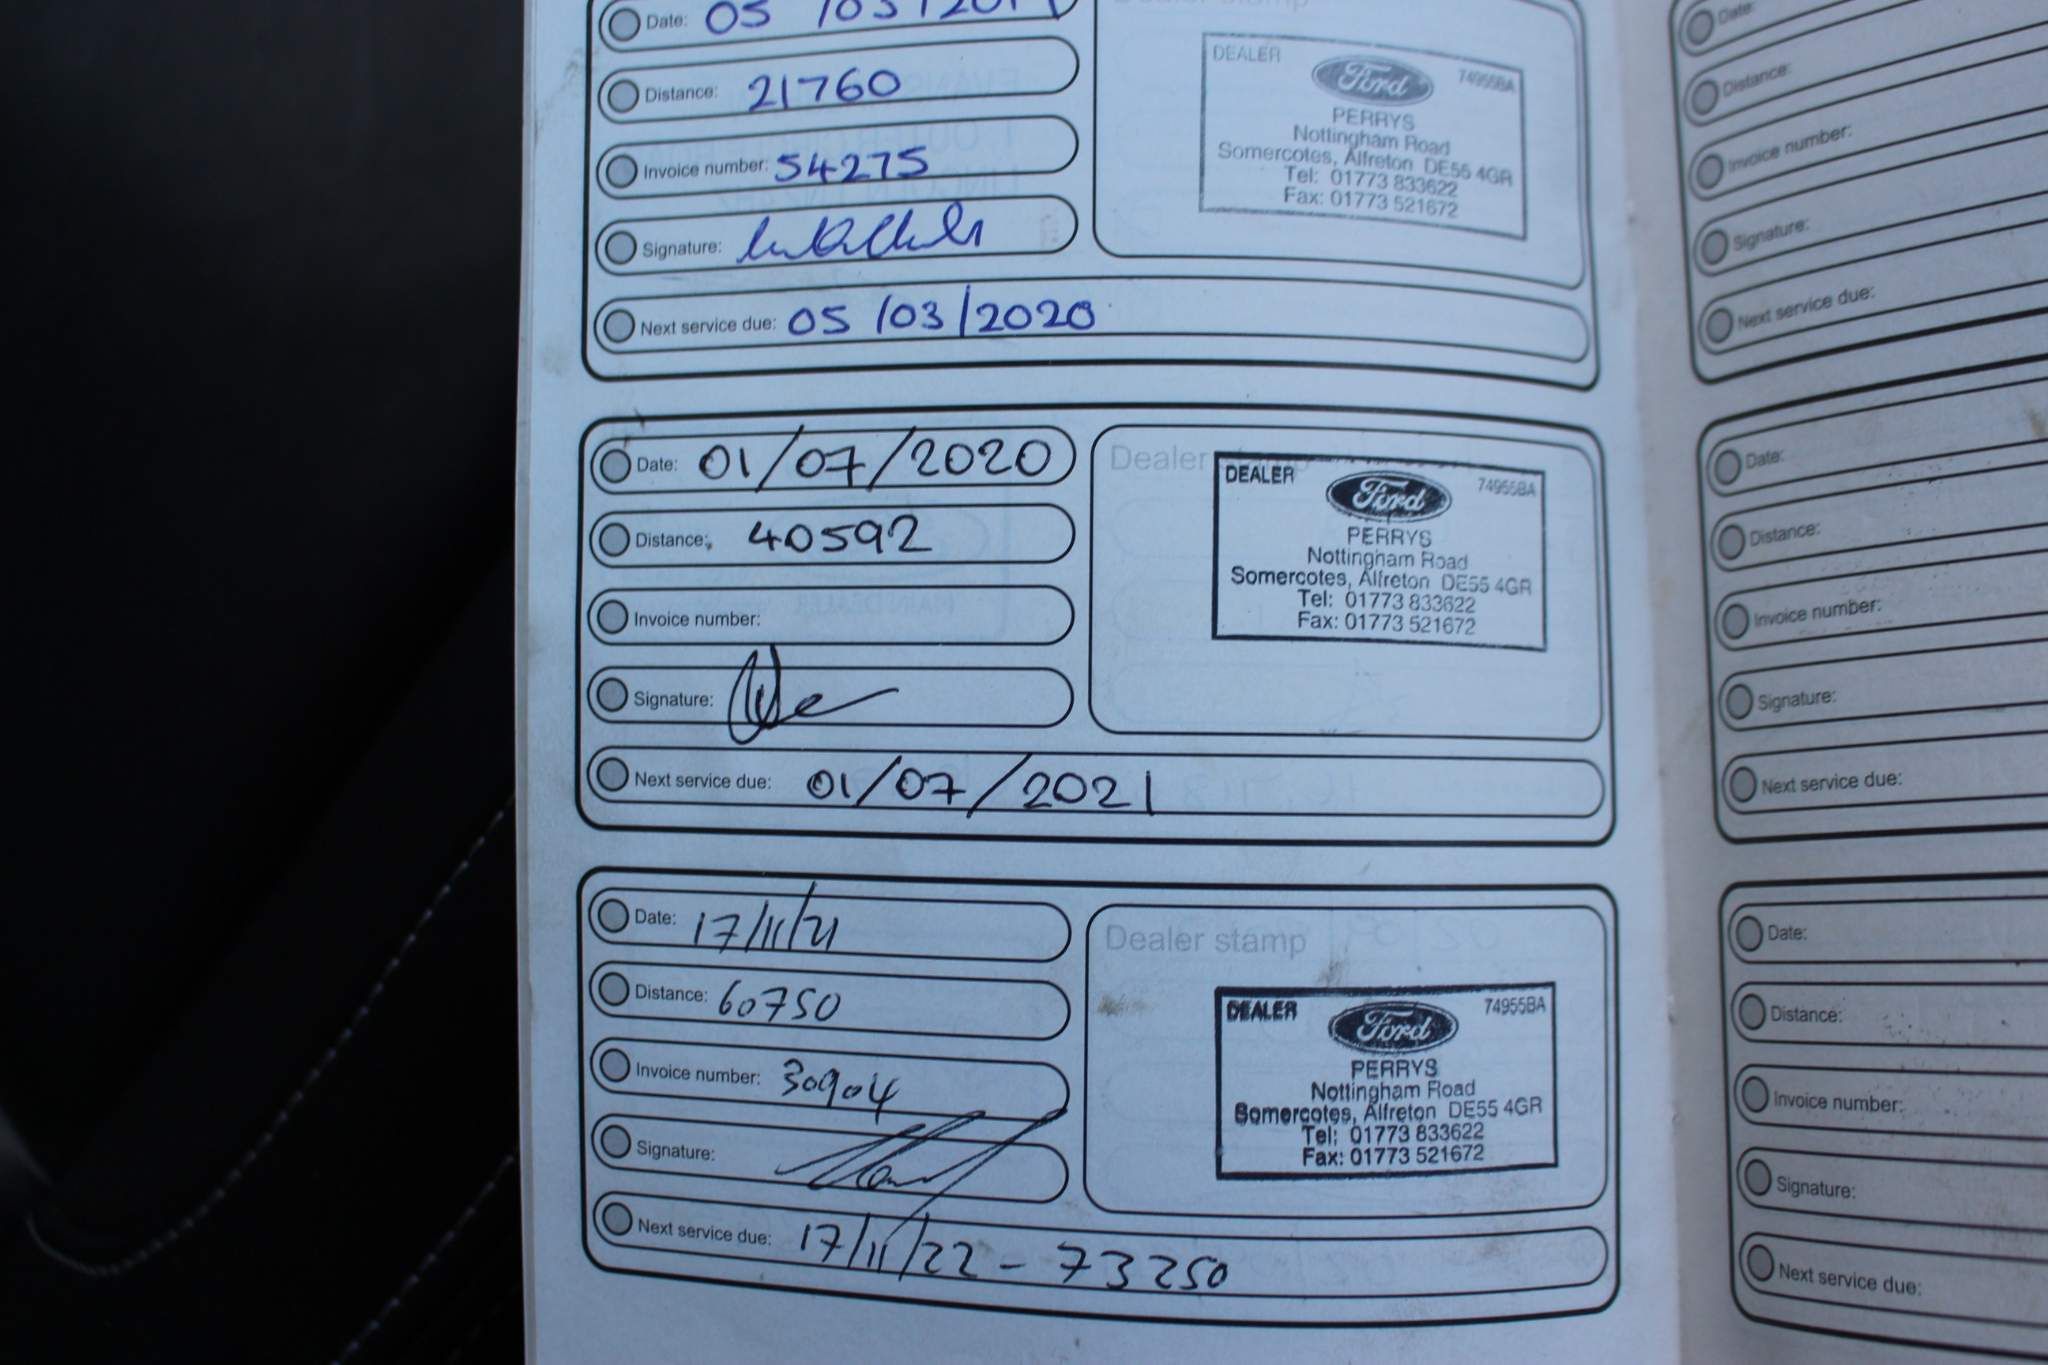 Date: 05/03/2019
Distance: 21760
Invoice number: 54275
Signature:
Next service due: 05/03/2020
Dealer stamp
DEALER
Ford
74955BA
PERRYS
Nottingham Road
Somercotes, Alfreton DE55 4GR
Tel: 01773 833622
Fax: 01773 521672
Date: 01/07/2020
Distance: 40592
Invoice number:
Signature:
Next service due: 01/07/2021
Dealer stamp
DEALER
Ford
74955BA
PERRYS
Nottingham Road
Somercotes, Alfreton DE55 4GR
Tel: 01773 833622
Fax: 01773 521672
Date: 17/11/21
Distance: 60750
Invoice number: 30904
Signature:
Next service due: 17/11/22 - 73250
Dealer stamp
DEALER
Ford
74955BA
PERRYS
Nottingham Road
Somercotes, Alfreton DE55 4GR
Tel: 01773 833622
Fax: 01773 521672
Date:
Distance:
Invoice number:
Signature:
Next service due:
Date:
Distance:
Invoice number:
Signature:
Next service due:
Date:
Distance:
Invoice number:
Signature:
Next service due: